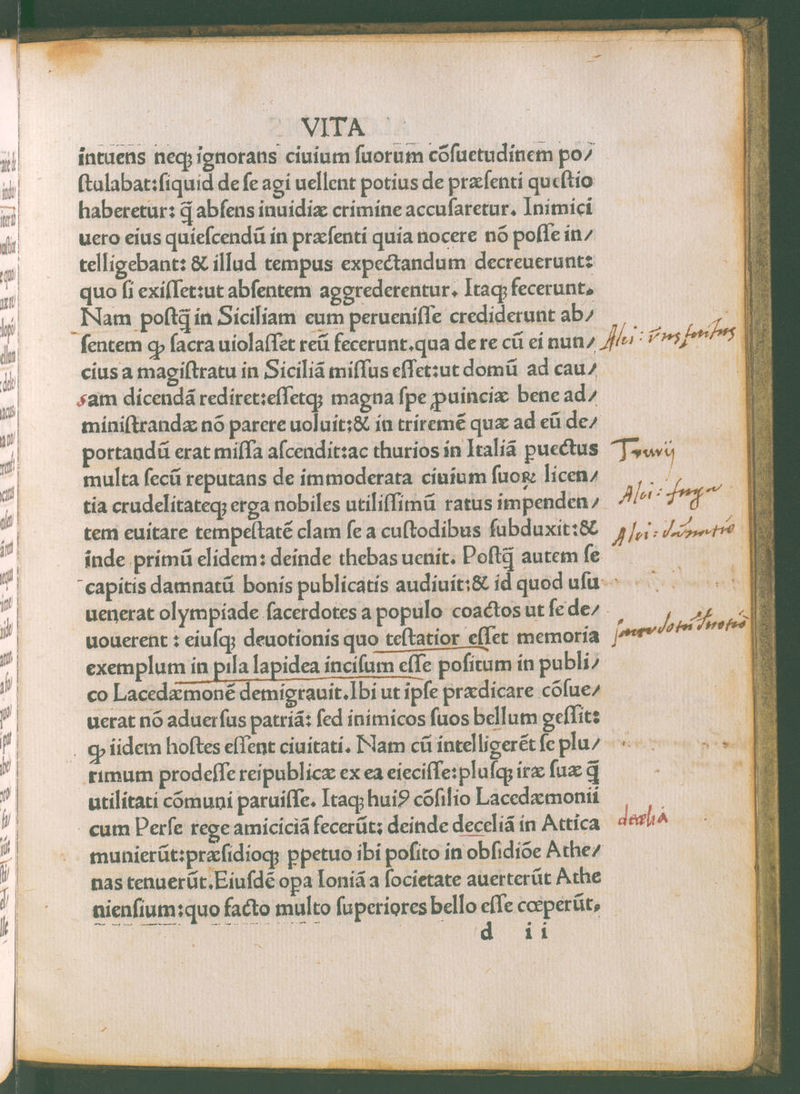 VITA
intuens neqꝫ ignorans ciuium ſuorum cõſuetudinem po/
ſtulabat:ſiquid de ſe agi uellent potius de præſenti quęſtio
haberetur: q̃ abſens inuidiæ crimine accuſaretur. Inimici
uero eius quieſcendũ in præſenti quia nocere nõ poſſe in/
telligebant: & illud tempus expectandum decreuerunt:
quo ſi exiſſet:ut abſentem aggrederentur. Itaqꝫ fecerunt.
Nam poſtq̃ in Siciliam eum perueniſſe crediderunt ab/
ſentem ꝙ ſacra uiolaſſet reũ fecerunt.qua de re cũ ei nun/
cius a magiſtratu in Siciliã miſſus eſſet:ut domũ ad cau/
sam dicendã rediret:eſſetqꝫ magna ſpe ꝓuinciæ bene ad/
miniſtrandæ nõ parere uoluit:& in triremẽ quæ ad eũ de/
portandũ erat miſſa aſcendit:ac thurios in Italiã puectus
multa ſecũ reputans de immoderata ciuium ſuoꝝ licen/
tia crudelitateqꝫ erga nobiles utiliſſimũ ratus impenden/
tem euitare tempeſtatẽ clam ſe a cuſtodibus ſubduxit:&
inde primũ elidem: deinde thebas uenit. Poſtq̃ autem ſe
capitis damnatũ bonis publicatis audiuit:& id quod uſu
uenerat olympiade ſacerdotes a populo coactos ut ſe de/
uouerent : eiuſqꝫ deuotionis quo teſtatior eſſet memoria
exemplum in pila lapidea inciſum eſſe poſitum in publi/
co Lacedæmonẽ demigrauit.Ibi ut ipſe prædicare cõſue/
uerat nõ aduerſus patriã: ſed inimicos ſuos bellum geſſit:
ꝙ iidem hoſtes eſſent ciuitati. Nam cũ intelligerẽt ſe plu/
rimum prodeſſe reipublicæ ex ea eieciſſe:pluſqꝫ iræ ſuæ q̃
utilitati cõmuni paruiſſe. Itaqꝫ huiꝰ cõſilio Lacedæmonii
cum Perſe rege amiciciã fecerũt: deinde deceliã in Attica
munierũt:præſidioqꝫ ppetuo ibi poſito in obſidiõe Athe/
nas tenuerũt.Eiuſdẽ opa Ioniã a ſocietate auerterũt Athe
nienſium:quo facto multo ſuperiores bello eſſe cœperũt.
d ii
Alci: fuga
Alci: dãnatio
decelia